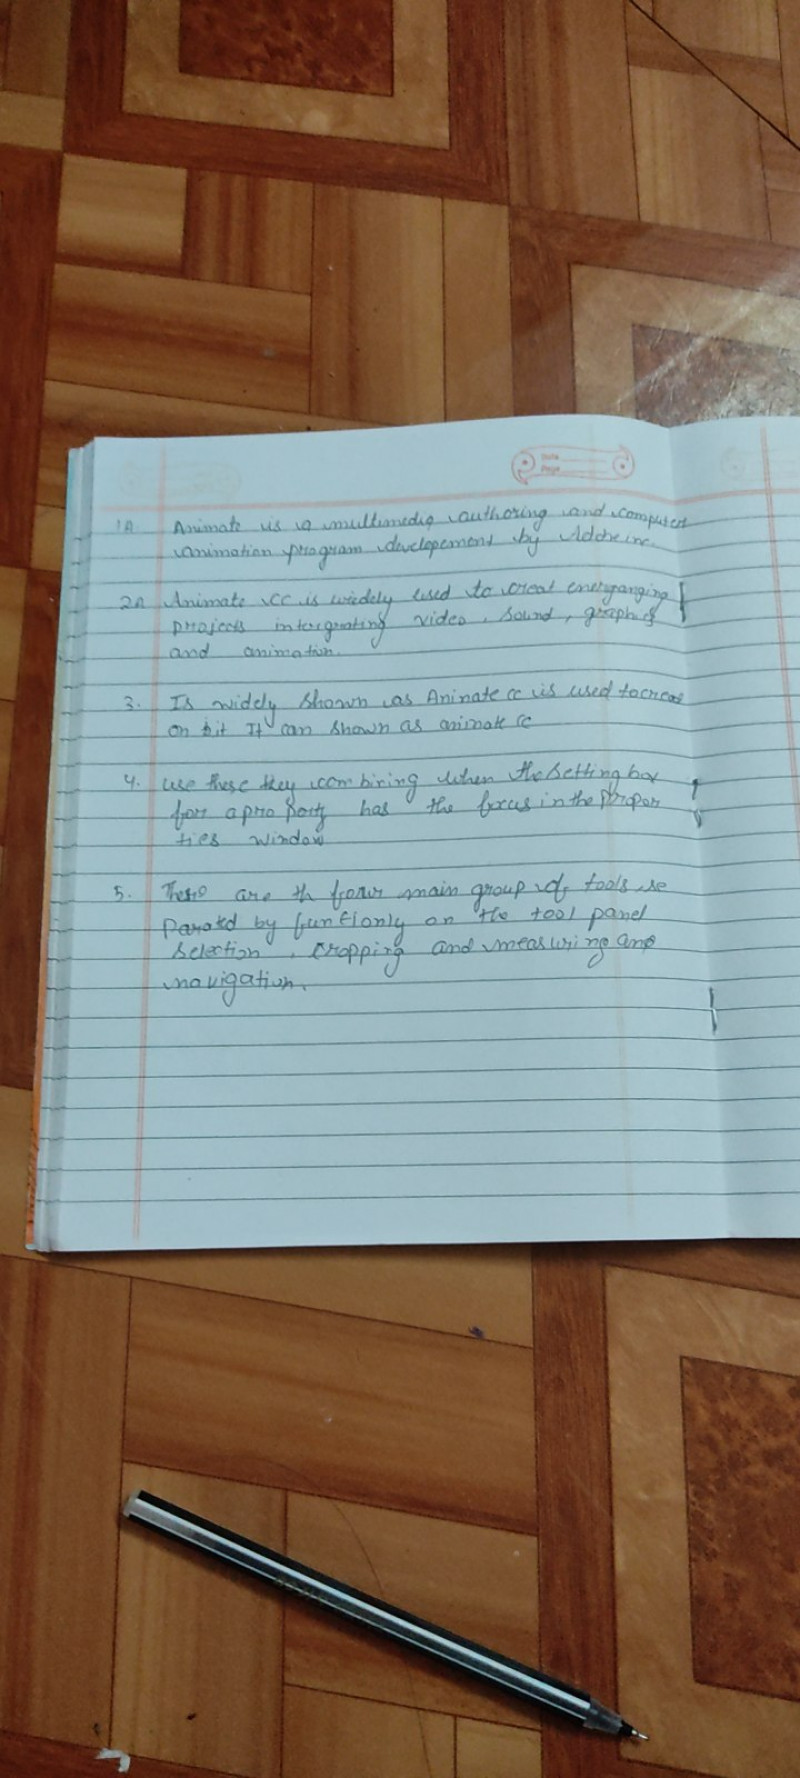 Date
Page
1A Animate is a multimedia authoring and computer
animation program developement by Adobe inc.
2A Animate CC is widely used to creat energanging
projects intergrating video, sound, graphics
and animation.
3. Is widely shown as Aninate cc is used to creat
on bit It can shown as animate cc
4. use these key combining when the setting box
for a pro porty has the focus in the propor
ties window
5. These are th four main group of tools se
parated by funtionly on the tool panel
selection, cropping and measuring and
navigation.